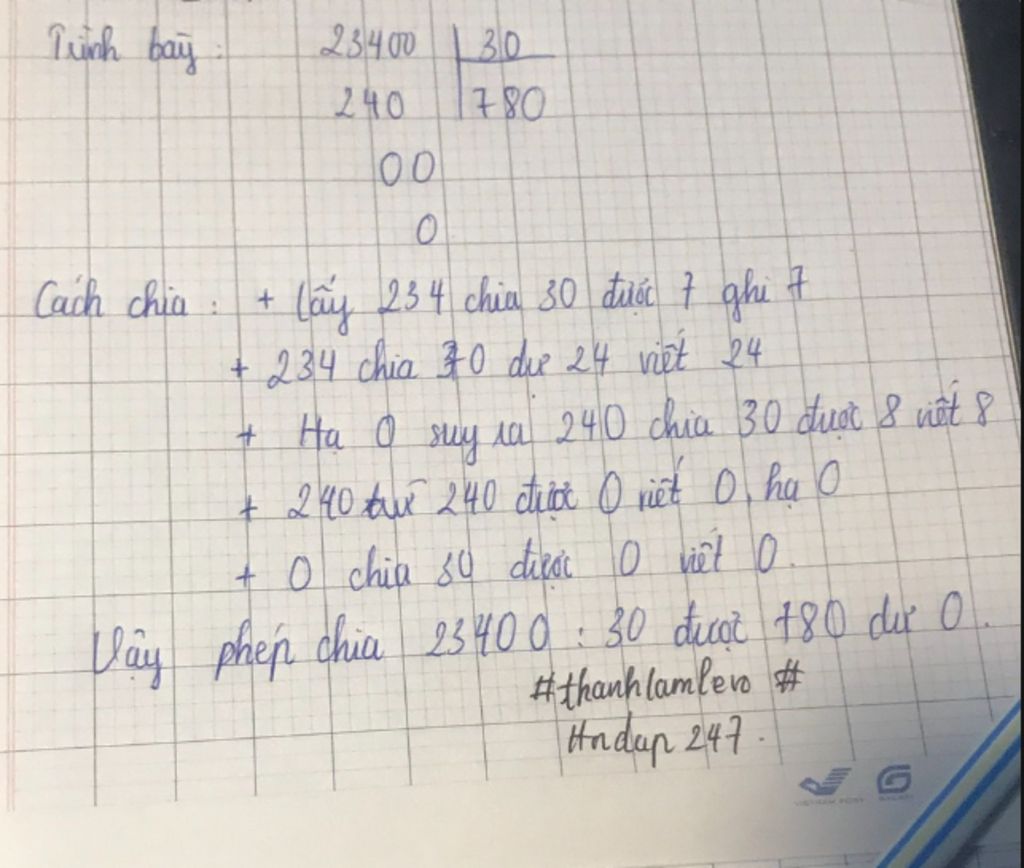 Trình bày : 23400 | 30
240 | 780
00
0
Cách chia : + Lấy 234 chia 30 được 7 ghi 7
+ 234 chia 30 dư 24 viết 24
+ Hạ 0 suy ra 240 chia 30 được 8 viết 8
+ 240 trừ 240 được 0 viết 0, hạ 0
+ 0 chia 30 được 0 viết 0.
Vậy phép chia 23400 : 30 được 780 dư 0.
#thanhlamlevo #
Hndap 247.